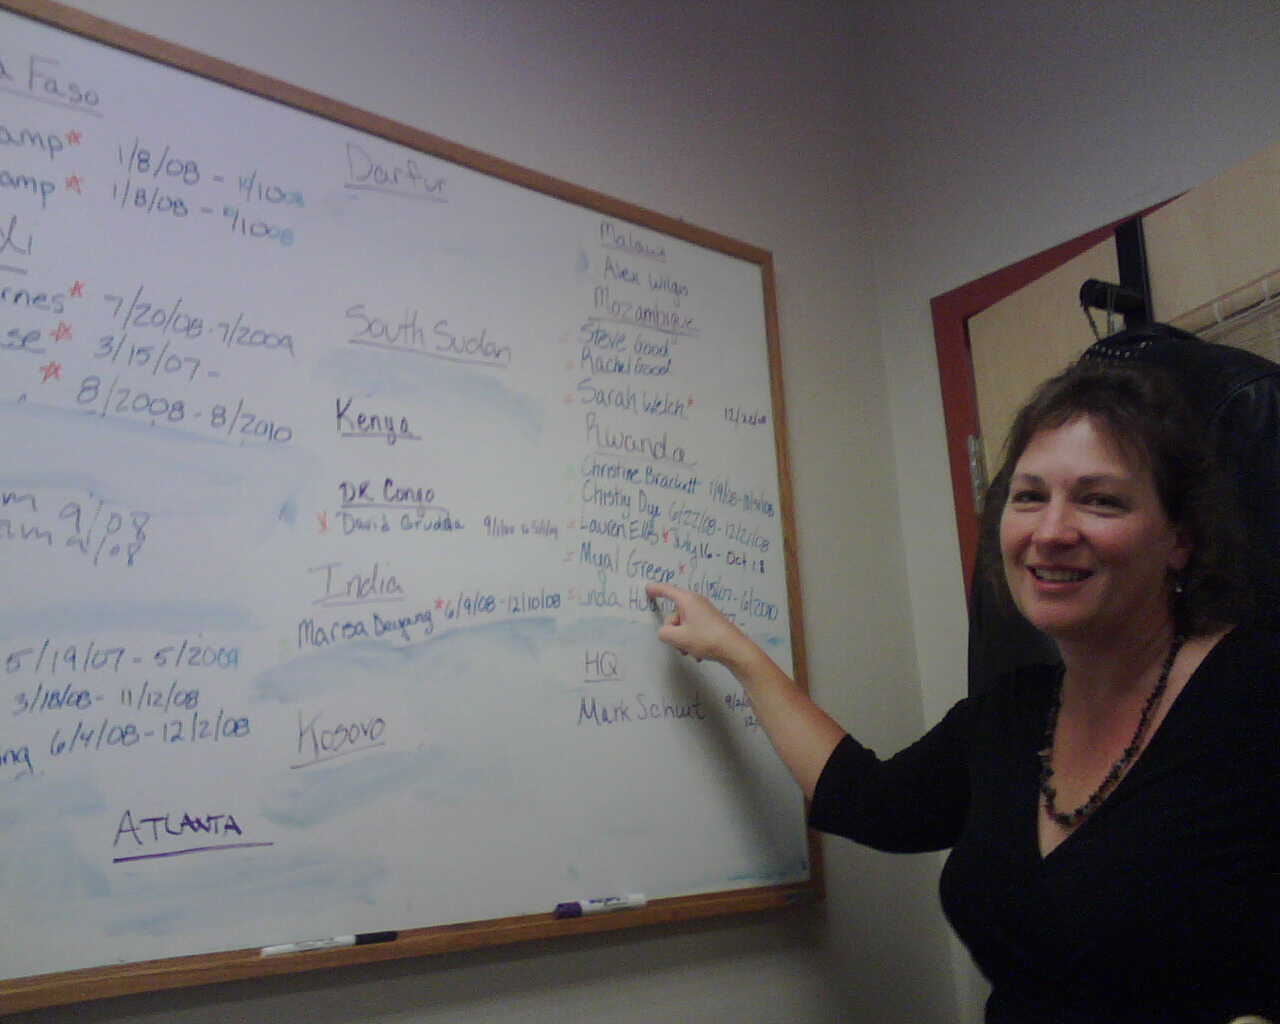 a Faso
amp* 1/8/08 -
amp* 1/8/08 -
li
rnes* 7/20/08 - 7/2009
se* 3/15/07 -
* 8/2008 - 8/2010
m 9/08
am 9/08
5/19/07 - 5/2009
3/18/08 - 11/12/08
ng 6/4/08 - 12/2/08
ATLANTA
Darfur
South Sudan
Kenya
DR Congo
David
India
Marisa *6/9/08 - 12/10/08
Kosovo
Malawi
Alex Wilgis
Mozambique
Steve Good
Rachel Good
Sarah Welch*
Rwanda
Christine Brackett 1/9/08 -
Christy Dye 6/22/08 - 12/21/08
Lauren Ellis* July 16 - Oct 18
Myal Greene* 6/15/07 - 6/2010
HQ
Mark